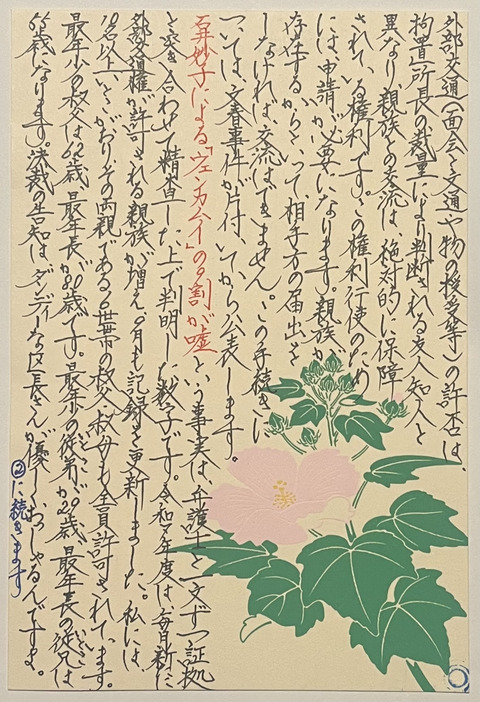 外部交通(面会と文通や物の授受等)の許否は、
拘置所長の裁量により判断される友人知人と
異なり、親族との交流は、絶対的に保障
されている権利です。この権利行使のため
には、申請が必要になります。親族が
存在するからといって相手方の届出を
しなければ、交流はできません。この手続きに
ついては、文春事件が片付いてから公表します。
石井妙子による「ウェンカムイ」の9割が嘘という事実は、弁護士と一文ずつ証拠
を突き合わせて精査した上で判明した数字です。令和7年度は、毎月新たに
外部交通権が許可される親族が増え、9月も記録を更新しました。私には、
10名以上いとこがおり、その両親である6世帯の叔父叔母も全員許可されています。
最年少の叔父は62歳、最年長が80歳です。最年少の従弟が29歳、最年長の従兄は
55歳になります。決裁の告知は、ダンディーな区長さんが優しくおっしゃるんですよ。
②に続きます